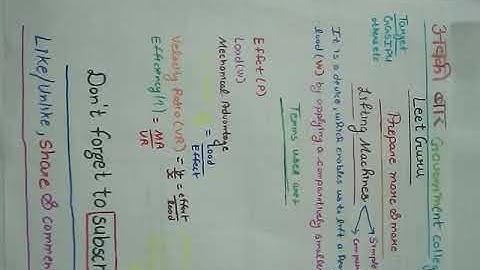 अबकी बार Government colle
Leet Guru
Target
GGSIPU
other etc
Prepare more & more
Lifting Machines
Simple
Compoun
It is a device, which enables us to lift a
load (W) by applying a comparitively smalle
Terms used are
Effort (P)
Load (W)
Mechanical Advantage
= Load
Effort
Velocity Ratio (VR) = y/x = effort/load
Efficiency (η) = MA/VR
Don't forget to subscr
Like/Unlike, share & commen